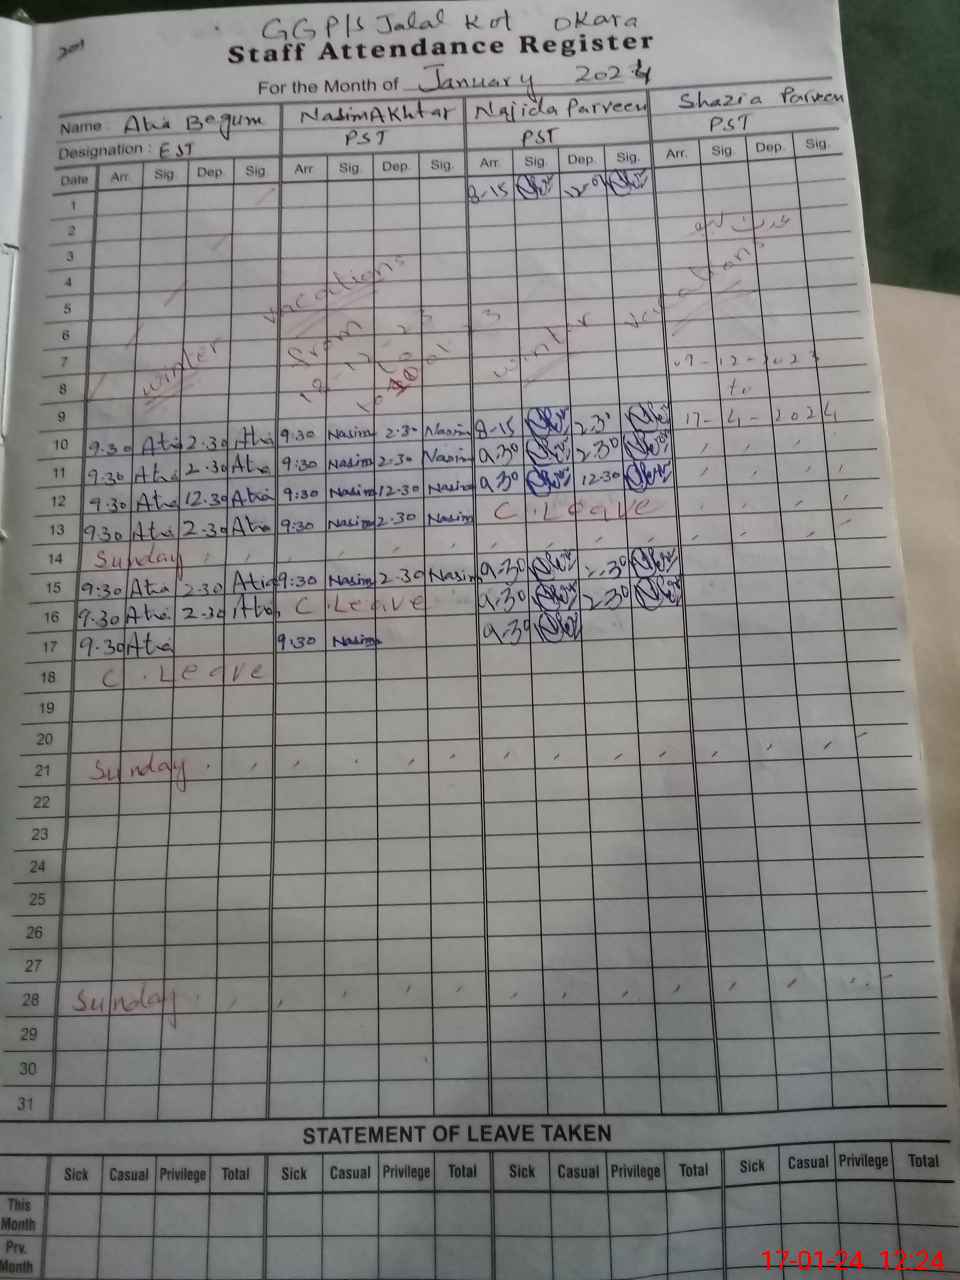 GGP/S Jalal Kot OKara
Staff Attendance Register
For the Month of January 2024
Name : Atia Begum NasimAkhtar Najida Parveen Shazia Parveen
Designation : EST PST PST PST
Date Arr. Sig. Dep. Sig. Arr. Sig. Dep. Sig. Arr. Sig. Dep. Sig. Arr. Sig. Dep. Sig.
1 8-15
2 عدت
3
4 vacations
5 vacations
6 from
7 winter winter 09-12-2023
8 to
9 17-4-2024
10 9.30 Atia 2.30 Atia 9:30 Nasim 2.30 Nasim 8-15 2.30
11 9.30 Atia 2.30 Atia 9:30 Nasim 2.30 Nasim 9.30 2.30
12 9.30 Atia 12.30 Atia 9:30 Nasim 12.30 Nasim 9.30 12.30
13 9.30 Atia 2.30 Atia 9:30 Nasim 2.30 Nasim C. Leave
14 Sunday
15 9:30 Atia 2.30 Atia 9:30 Nasim 2.30 Nasim 9.30 2.30
16 9.30 Atia 2.30 Atia C. Leave 9.30 2.30
17 9.30 Atia 9.30 Nasim 9.30
18 C. Leave
19
20
21 Sunday
22
23
24
25
26
27
28 Sunday
29
30
31
STATEMENT OF LEAVE TAKEN
Sick Casual Privilege Total Sick Casual Privilege Total Sick Casual Privilege Total Sick Casual Privilege Total
This Month
Prv. Month
17-01-24 12:24